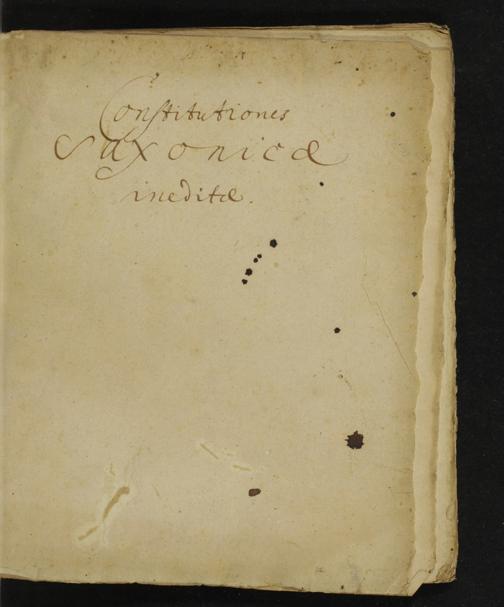 Constitutiones
Saxonicæ
ineditæ.